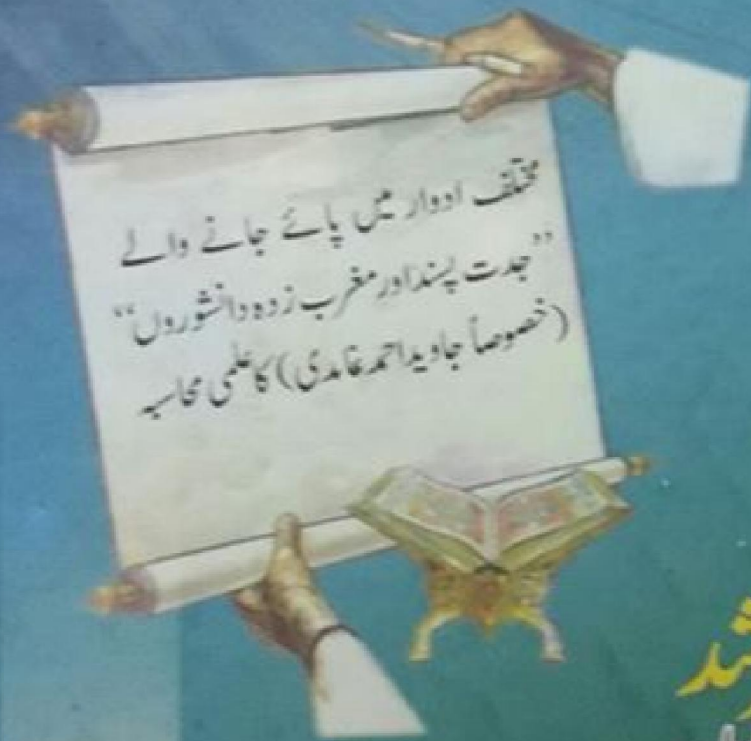 مختلف ادوار میں پائے جانے والے
”جدت پسند اور مغرب زدہ دانشوروں“
(خصوصاً جاوید احمد غامدی) کا علمی محاسبہ